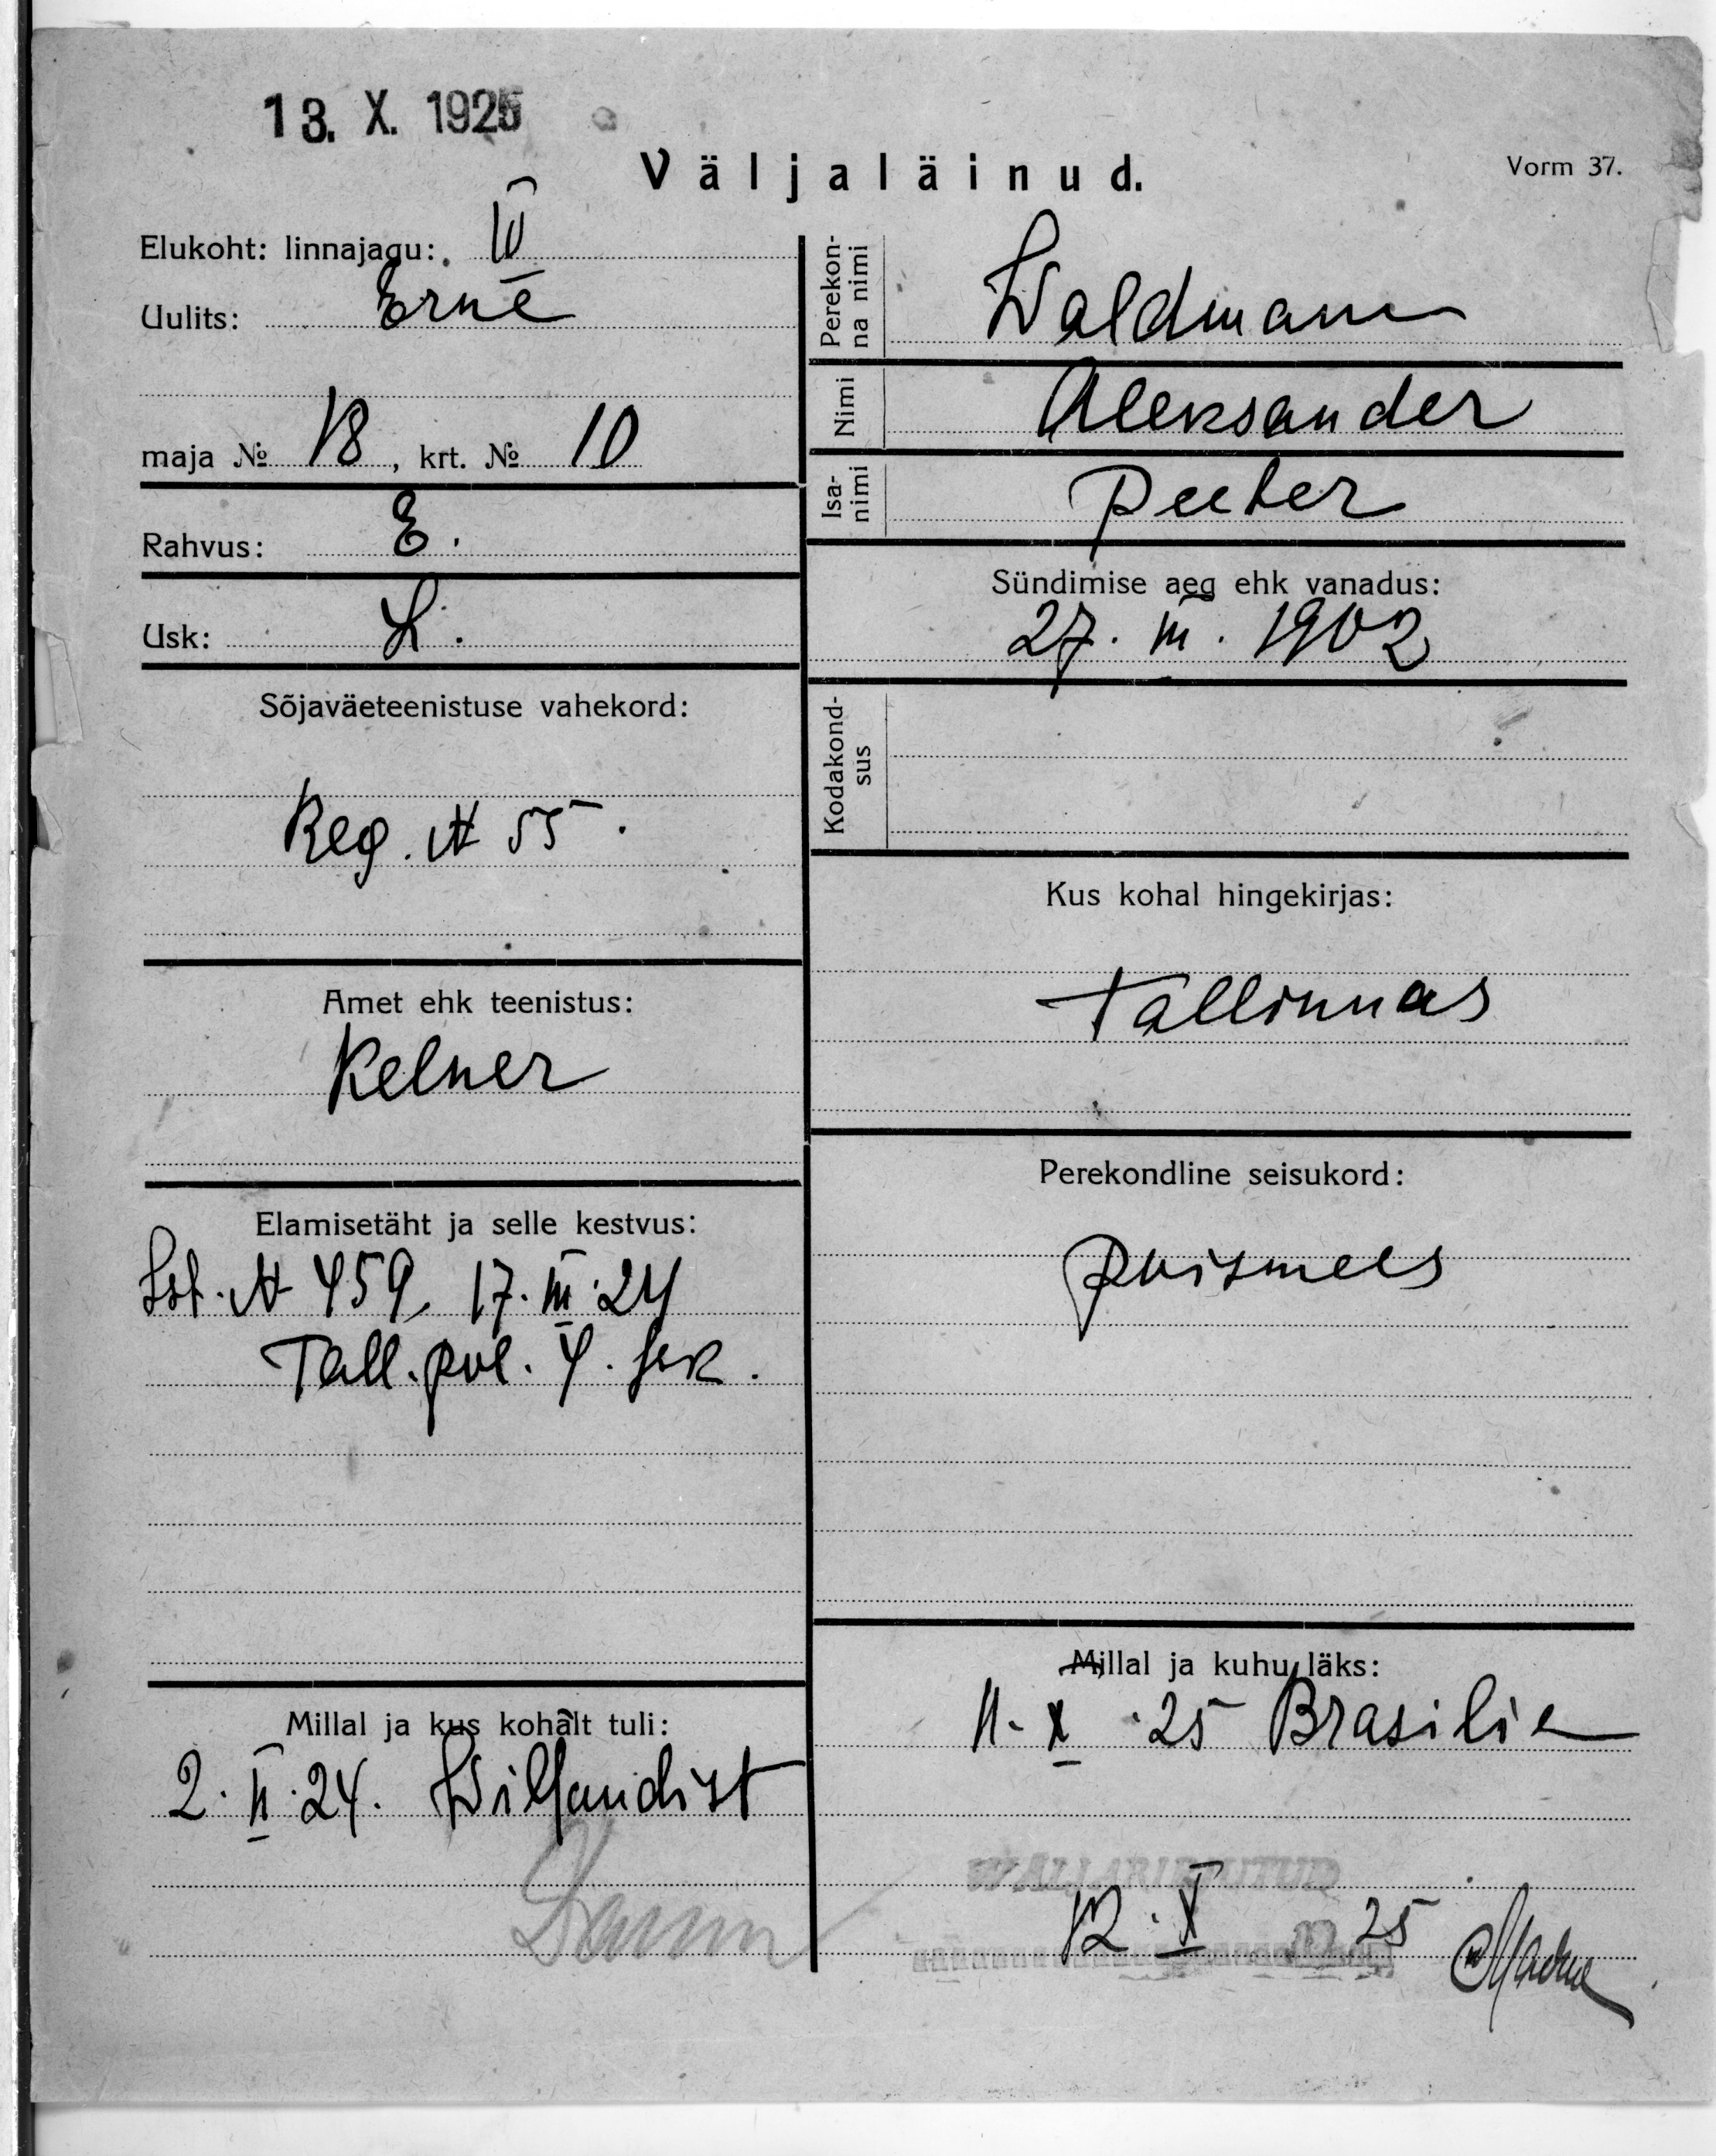 13. X. 1925
Väljaläinud.
Vorm 37.
Elukoht: linnajagu: IV
Uulits: Erne
maja № 18, krt. № 10
Rahvus: E.
Usk: L.
Sõjaväeteenistuse vahekord:
Reg. № 55.
Amet ehk teenistus:
Kelner
Elamisetäht ja selle kestvus:
№ 459, 17. III. 24
Tall. pol. 4. jsk.
Millal ja kus kohalt tuli:
2. II. 24. Wiljandist
Perekon-
na nimi
Waldmann
Nimi
Aleksander
Isa-
nimi
Peeter
Sündimise aeg ehk vanadus:
27. III. 1902
Kodakond-
sus
Kus kohal hingekirjas:
Tallinnas
Perekondline seisukord:
Poismees
Millal ja kuhu läks:
11. X. 25 Brasilia
WÄLJAKIRJUTUD
12. X 25